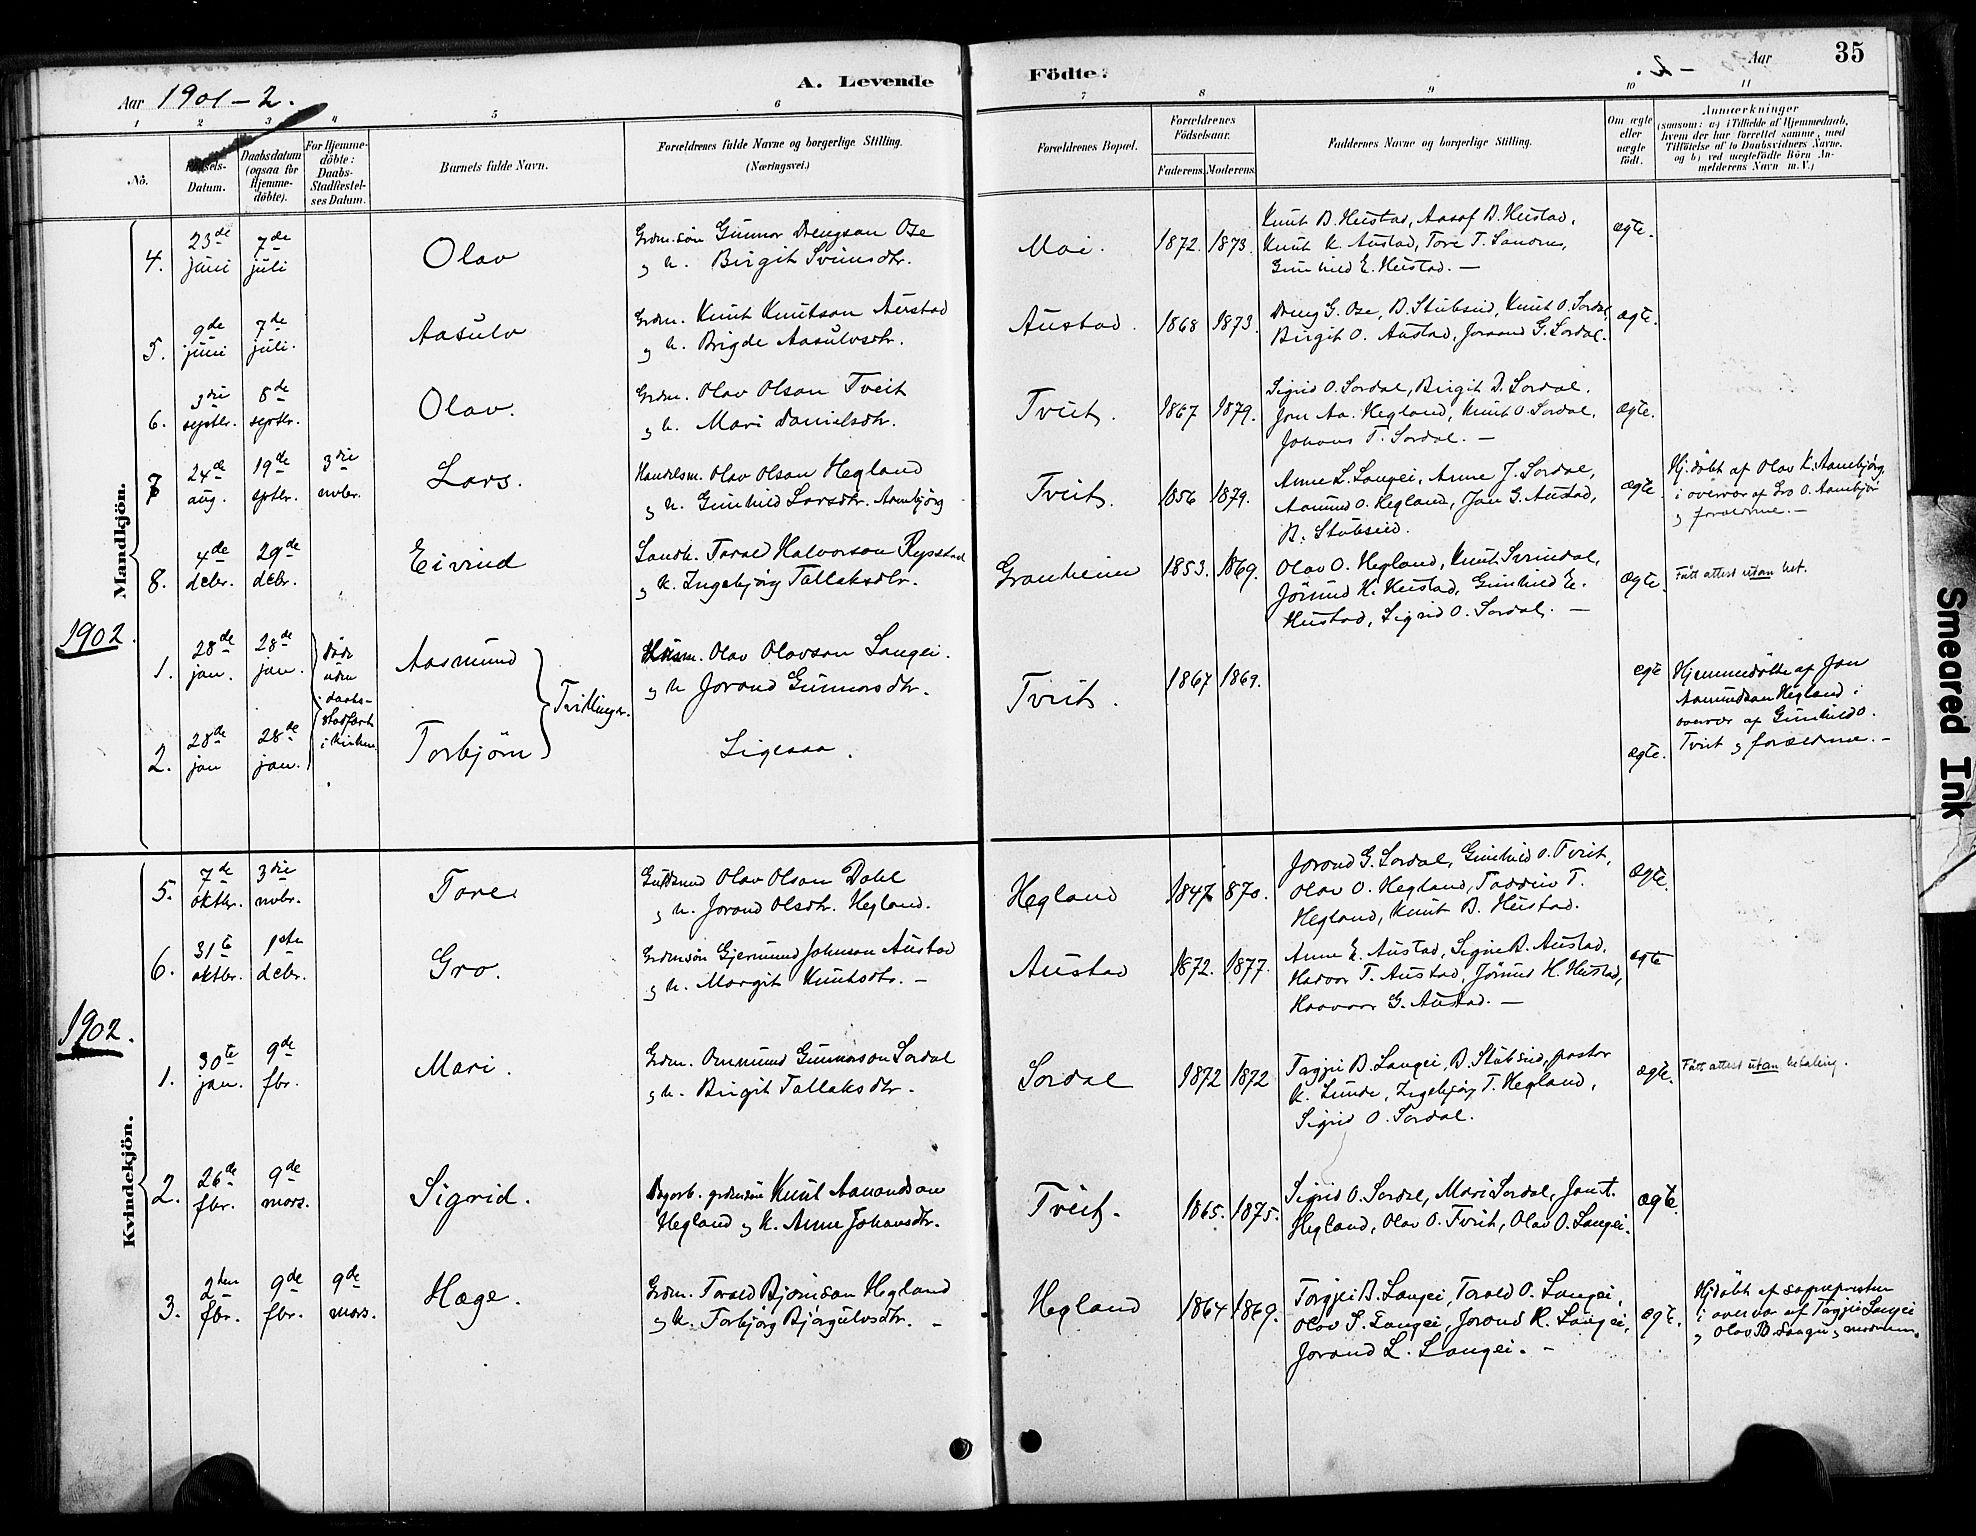 35
Aar 1901-2.
A. Levende Födte.
Aar
1 2 3 4 5 6 7 8 9 10 11
No.
Datum.
Daabsdatum (ogsaa for Hjemmedöbte).
For Hjemmedöbte: Daabs-Stadfæstelses Datum.
Barnets fulde Navn.
Forældrenes fulde Navne og borgerlige Stilling. (Næringsvei.)
Forældrenes Bopæl.
Forældrenes Födselsaar.
Faderens. Moderens.
Faddernes Navne og borgerlige Stilling.
Om ægte eller uægte födt.
Anmærkninger
(saasom: a) i Tilfælde af Hjemmedaab, hvem der har forrettet samme, med Tilföielse af to Daabsvidners Navne. og b) ved uægtefödte Börn Anmelderens Navn m. V.)
Mandkjön.
4. 23de juni 7de juli Olav
Grdm.sön Gunnar Dreugson Ose
og h. Birgit Sveinsdtr.
Moi. 1872. 1873.
Knut B. Heistad, Aasof B. Heistad,
Knut K. Austad, Tore T.
Gunhild E. Heistad. —
ægte.
5. 9de juni 7de juli. Aasulv
Grdm. Knut Knutson Austad
og h. Brigde Aasulvsdtr.
Austad. 1868 1873.
Dreug G. Ose, B. Stubseid, Knut O. Sordal,
Birgit O. Austad, Joraand G. Sordal.
ægte.
6. 3die septbr. 8de septbr. Olav.
Grdm. Olav Olson Tveit
og h. Mari Danielsdtr.
Tveit. 1867 1879.
Sigrid O. Sordal, Birgit D. Sordal.
Jon Aa. Hegland, Knut O. Sordal,
Johans T. Sordal. —
ægte.
7 24de aug. 19de sptbr. 3die nvbr. Lars.
Handelsm. Olav Olson Hegland
og h. Gunhild Larsdtr. Aamebjörg
Tveit. 1856 1879.
Anne L. Langei, Anne J. Sordal,
Aamund O. Hegland, Jon G. Austad,
B. Stubseid.
ægte
Hj.döbt af Olav K. Aamebjörg
i overvær af Gro O. Aamebjör
og forældrene. —
8. 4de debr. 29de debr. Eivind
Landh. Tarald Halvorson Rysstad
og h. Ingebjörg Tallaksdtr.
Granheim 1853. 1869.
Olav O. Hegland, Knut Sveindal,
Jörund H. Heistad, Gunhild E.
Heistad, Sigrid O. Sordal. —
ægte.
Fått attest utan bet.
1902.
1. 28de jan. 28de jan. Aasmund
döde
uden
daabs-
stadfæst
i kirken
Tvillinger.
Husm. Olav Olavson Langei.
og h Jorand Gunnarsdtr.
Tveit. 1867 1869.
egte
Hjemmedöbte af Jon
Aamundson Hegland i
overvær af Gunhild O.
Tveit og forældrene. —
2. 28de jan 28de jan. Torbjörn
Ligesaa.
ægte.
Kvindekjön.
5. 7de oktbr. 3die nvbr. Tore
Olav Olson Dahl
og h. Jorand Olsdtr. Hegland.
Hegland 1847 1870.
Jorand G. Sordal, Gunhild O. Tveit,
Olav O. Hegland, Taddeiv T.
Hegland, Knut B. Heistad.
ægte.
6. 31te oktbr. 1ste debr. Gro.
Grdmsön Gjermund Johnson Austad
og h. Margit Knutsdtr. —
Austad 1872. 1877.
Anne E. Austad, Signe B. Austad.
Halvor T. Austad, Jörund H. Heistad,
Haavaar G. Austad. —
egte
1902.
1. 30te jan. 9de fbr. Mari.
Grdm. Ommund Gunnarson Sordal
og h. Birgit Tallaksdtr.
Sordal 1872 1872
Targjei B. Langei, B. Stubseid, pastor
K. Lunde, Ingebjörg T. Hegland,
Sigrid O. Sordal.
ægte.
Fått attest utan betaling.
2. 26de fbr. 9de mars. Sigrid.
Dagarb. grdmsön Knut Aamundson
Hegland og h. Anne Johansdtr.
Tveit. 1865. 1875.
Sigrid O. Sordal, Mari Sordal, Jon A.
Hegland, Olav O. Tveit, Olav O. Langei.
ægte.
3. 2den fbr. 9de fbr. 9de mars. Hæge.
Grdm. Torald Björnson Hegland
og h. Torbjörg Björgulvsdtr. —
Hegland 1864 1869.
Torgjei B. Langei, Torald O. Langei,
Olav S. Langei, Jorand R. Langei,
Jorand L. Langei. —
ægte.
Hj.döbt af sognepresten
i overvær af Targjei Langei
og Olav B. Langei og moderen.
Smeared Ink